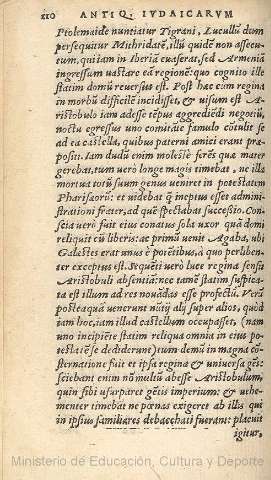 210 ANTIQ. IVDAICARVM
Ptolemaide nuntiatur Tigrani, Lucullũ dum
persequitur Mithridatẽ, illũ quidẽ non assecu-
tum, qui iam in Iberia euaserat, sed Armeniã
ingressum uastare ea regionẽ: quo cognito ille
statim domũ reuersus est. Post hæc cum regina
in morbũ difficilẽ incidisset, & uisum est Ari-
stobulo iam adesse tẽpus aggrediẽdi negocii,
noctu egressus uno comitatus famulo cõtulit se
ad ea castella, quibus paterni amici erant præ-
positi. Iam dudũ enim molestè ferẽs quæ mater
gerebat, tum uerò longe magis timebat, ne illa
mortua totũ suum genus ueniret in potestatem
Phariseorũ: et uidebat q̃ ineptus esset admini-
strationi frater, ad quẽ spectabat successio. Con-
scia uerò fuit eius conatus sola uxor quã domi
reliquit cũ liberis: ac primũ uenit Agaba, ubi
Galestes erat unus è potẽtibus, à quo perliben-
ter exceptus est. Sequẽti uerò luce regina sensit
Aristobuli absentiã: nec tamẽ statim suspica-
ta est illum ad res nouãdas esse profectũ. Verũ
postea quã uenerunt nũtij alij super alios, quòd
iam hoc, iam illud castellum occupasset, (nam
uno incipiẽte statim reliqua omnia in eius po-
testatẽ se dediderunt) tum demũ in magna cõ-
sternatione fuit et ipsa regina & uniuersa gẽs:
sciebant enim nõ multũ abesse Aristobulum,
quin sibi usurparet gẽtis imperium: & uehe-
menter timebat ne pœnas exigeret ab illis qui
in ipsius familiares debacchati fuerant: placuit
igitur,
Ministerio de Educación, Cultura y Deporte